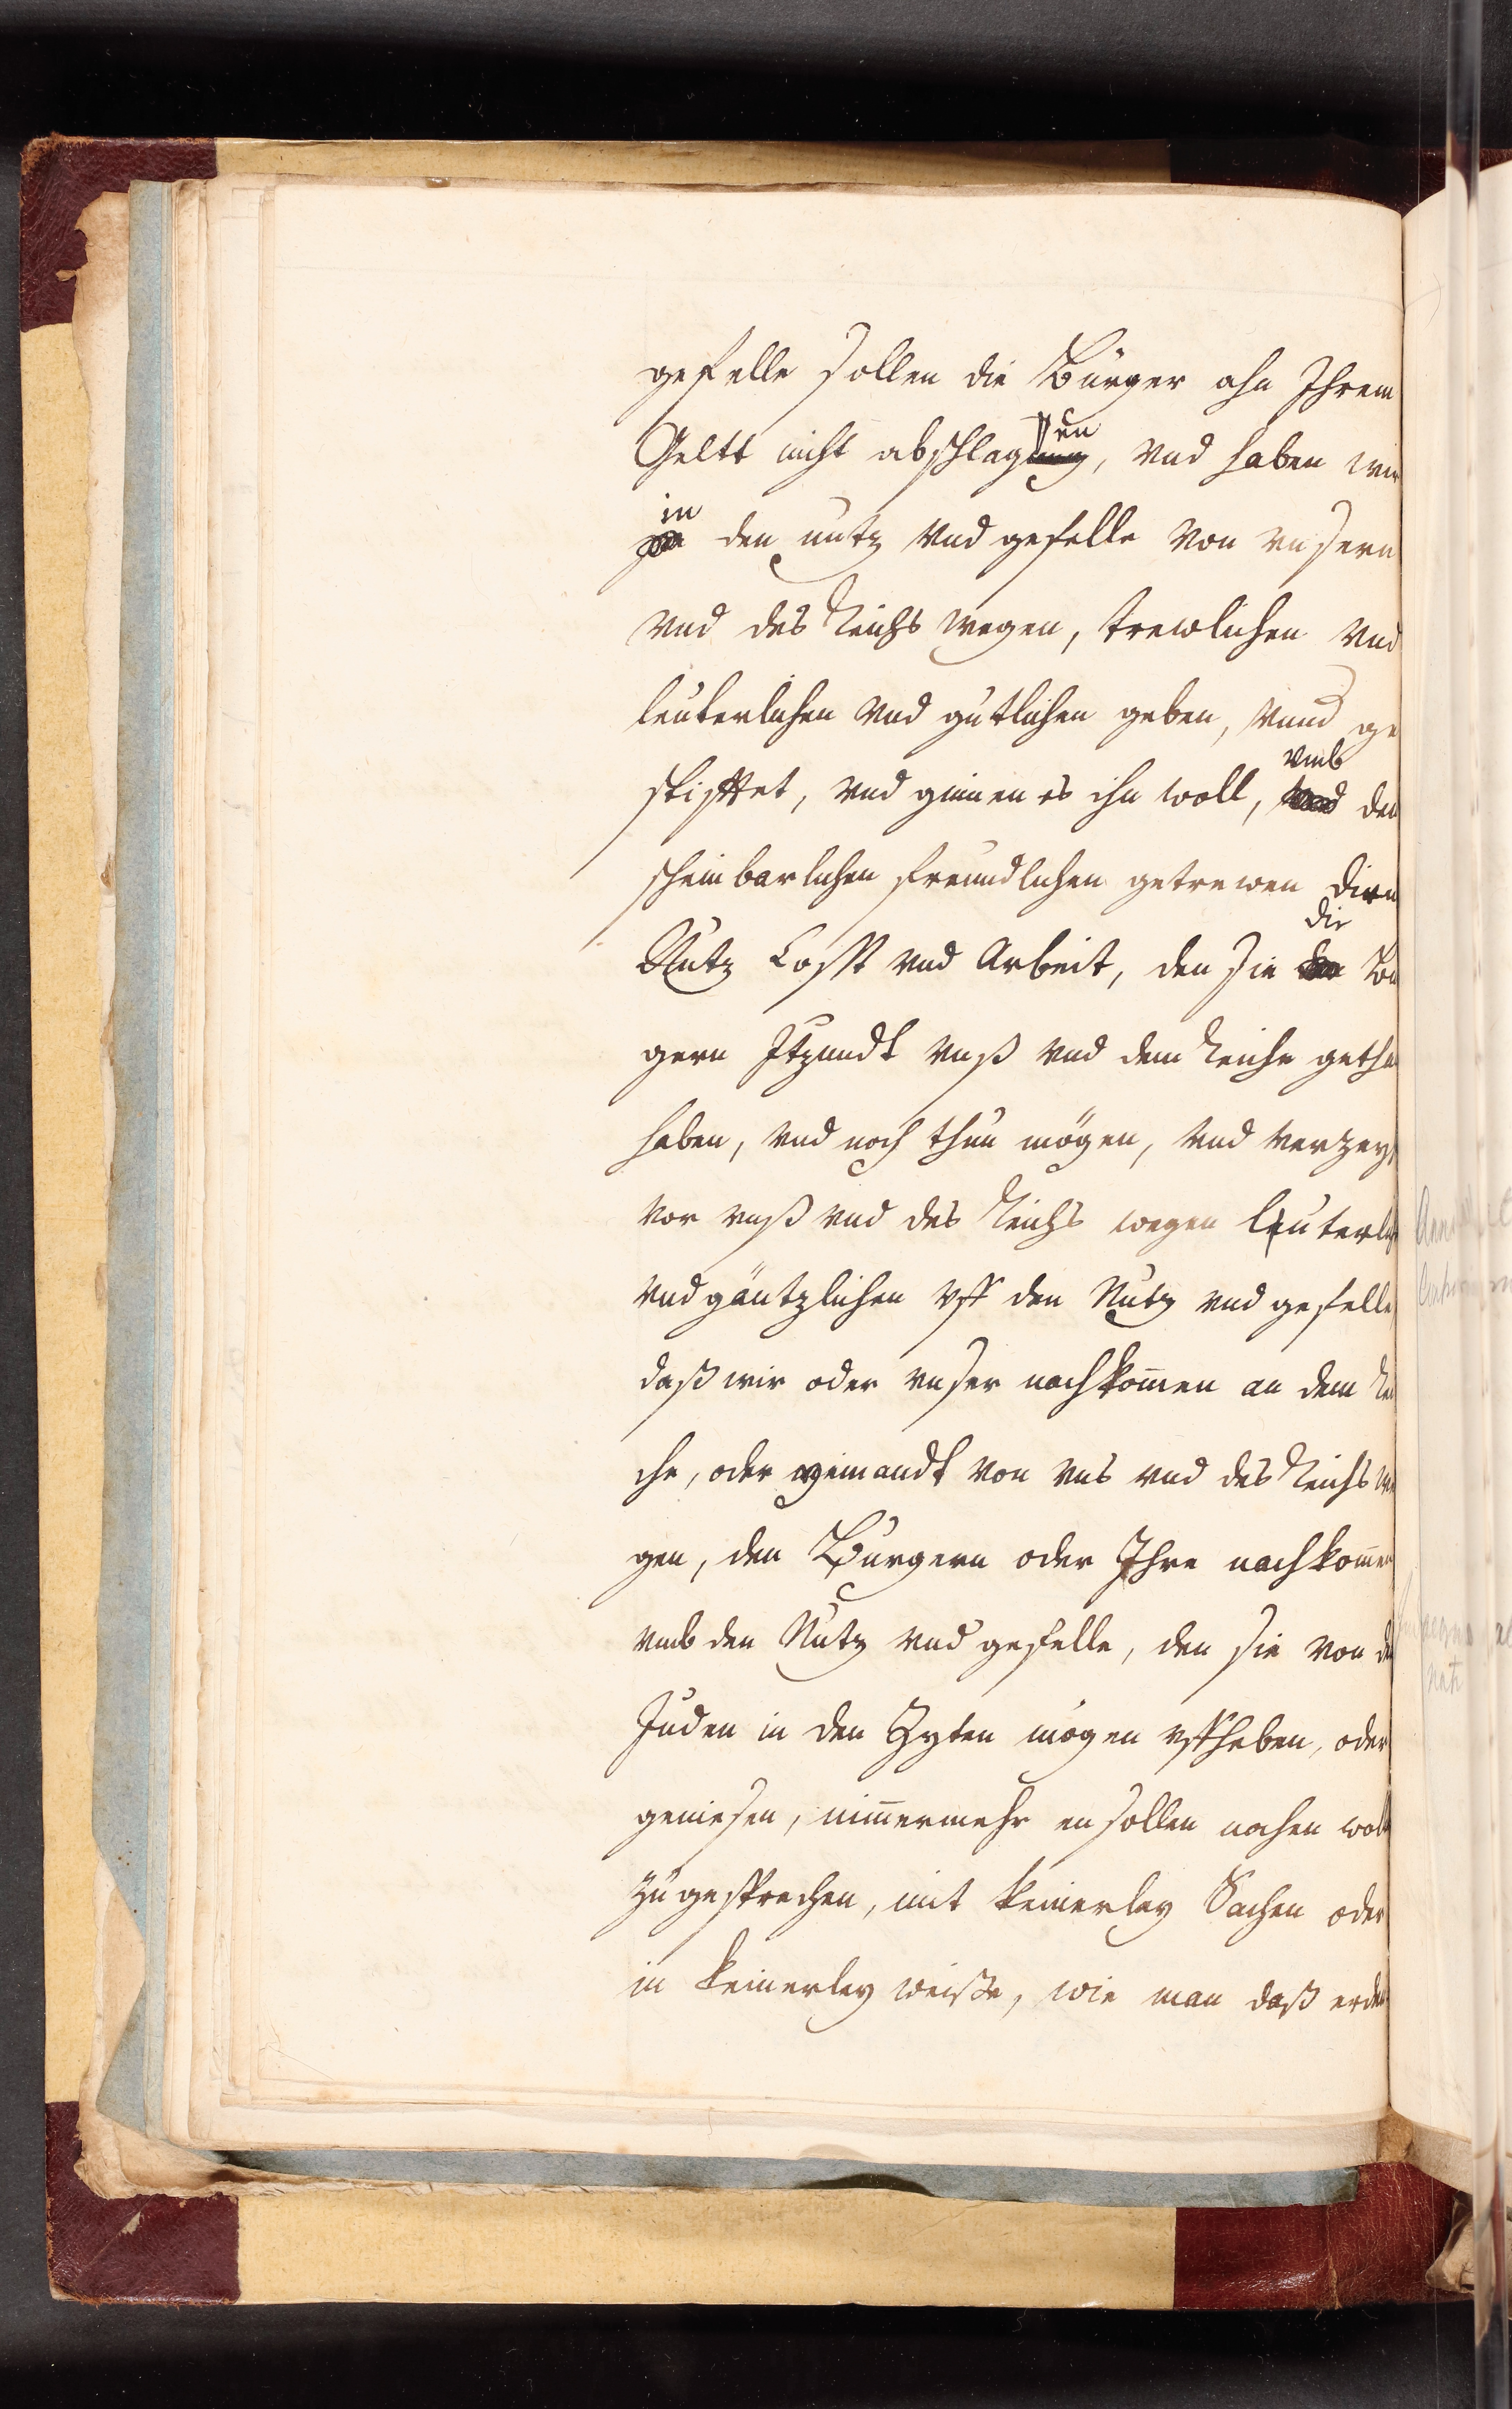 gefelle sollen die Bürger ahn Ihrem
Geltt nicht abschlagen, vnd haben wir
in den nutz vnd gefelle von vnsern
vnd des Reichs wegen, trewlichen vnd
leuterlichen vnd gütlichen geben, vnnd ge
stifftet, vnd ginnen es ihn woll, vmb den
scheinbarlichen freundlichen getrewen Dien
Nutz Cosst vnd Arbeit, den sie die Bu
gern Itzundt vnß vnd dem Reiche getha
haben, vnd noch thun mögen, vnd verzey
vor vnß vnd des Reichs wegen leuterlich
vnd gäntzlichen vff den Nutz vnd gefelle
daß wir oder vnser nachkom̄en an dem Rei
che, oder yemandt von vns vnd des Reichs we
gen, den Bürgern oder Ihre nachkom̄en
vmb den Nutz vnd gefelle, den sie von den
Juden in den Zyten mögen vffheben, oder
geniesen, nim̄ermehr ensollen nochen woll
zugesprechen, mit keinerley Sachen oder
in keinerley weiße, wie man daß erden